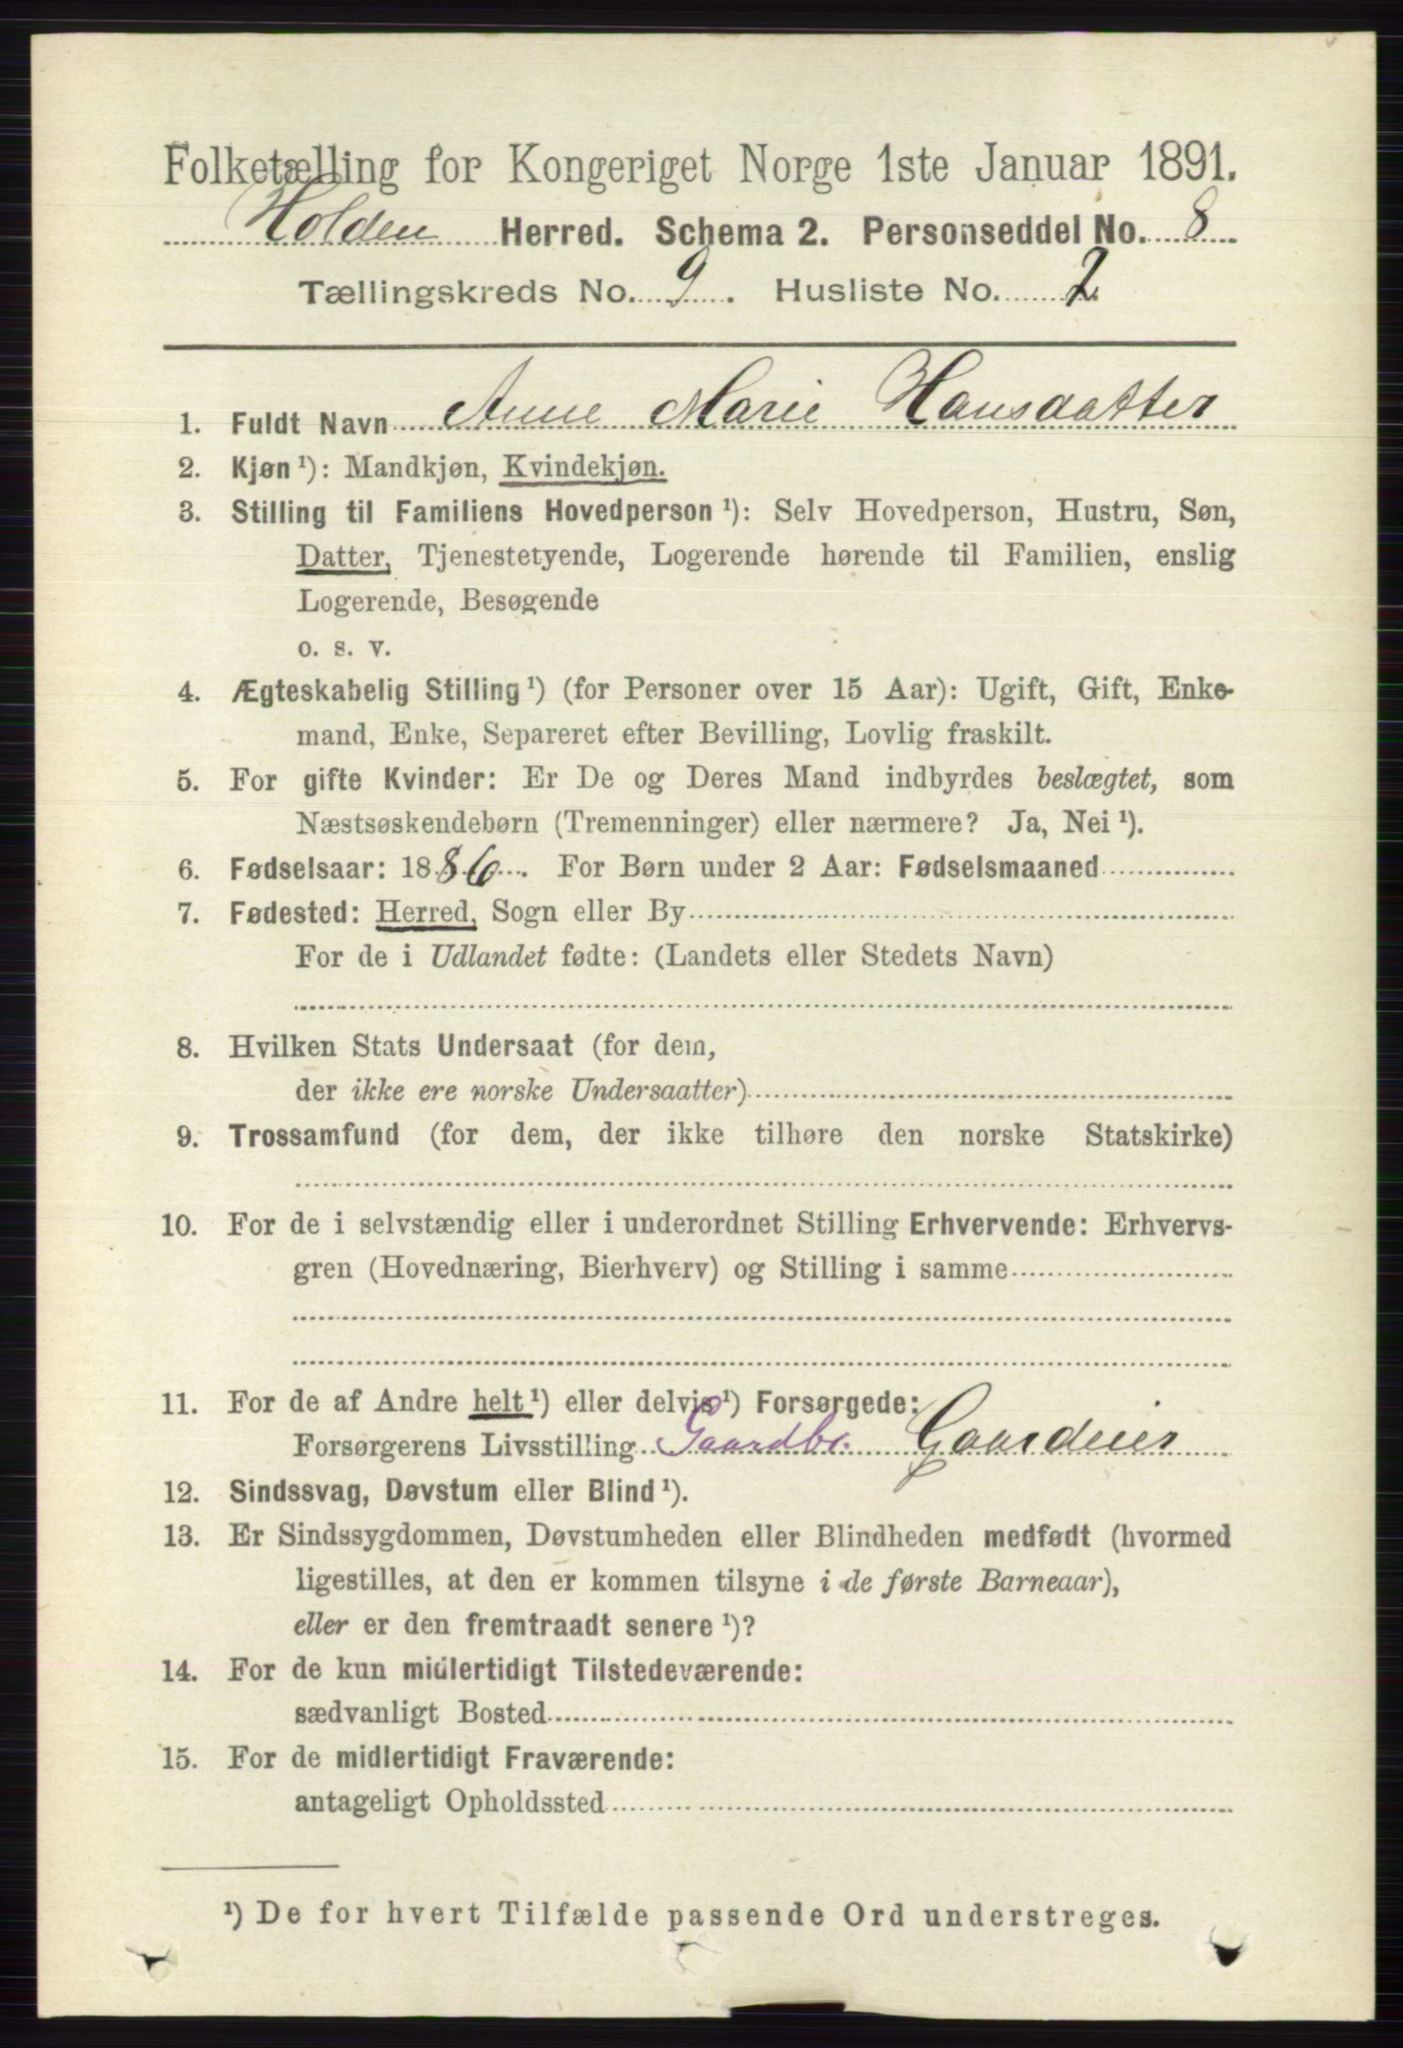 Folketælling for Kongeriget Norge 1ste Januar 1891.
Holden Herred. Schema 2. Personseddel No. 8
Tællingskreds No. 9. Husliste No. 2
1. Fuldt Navn Anne Marie Hansdatter
2. Kjøn ¹): Mandkjøn, Kvindekjøn.
3. Stilling til Familiens Hovedperson ¹): Selv Hovedperson, Hustru, Søn,
Datter, Tjenestetyende, Logerende hørende til Familien, enslig
Logerende, Besøgende
o. s. v.
4. Ægteskabelig Stilling ¹) (for Personer over 15 Aar): Ugift, Gift, Enke-
mand, Enke, Separeret efter Bevilling, Lovlig fraskilt.
5. For gifte Kvinder: Er De og Deres Mand indbyrdes beslægtet, som
Næstsøskendebørn (Tremenninger) eller nærmere? Ja, Nei ¹).
6. Fødselsaar: 1886. For Børn under 2 Aar: Fødselsmaaned
7. Fødested: Herred, Sogn eller By
For de i Udlandet fødte: (Landets eller Stedets Navn)
8. Hvilken Stats Undersaat (for dem,
der ikke ere norske Undersaatter)
9. Trossamfund (for dem, der ikke tilhøre den norske Statskirke)
10. For de i selvstændig eller i underordnet Stilling Erhvervende: Erhvervs-
gren (Hovednæring, Bierhverv) og Stilling i samme
11. For de af Andre helt ¹) eller delvis ¹) Forsørgede:
Forsørgerens Livsstilling Gaardbr. Gaardeier
12. Sindssvag, Døvstum eller Blind ¹).
13. Er Sindssygdommen, Døvstumheden eller Blindheden medfødt (hvormed
ligestilles, at den er kommen tilsyne i de første Barneaar),
eller er den fremtraadt senere ¹)?
14. For de kun midlertidigt Tilstedeværende:
sædvanligt Bosted
15. For de midlertidigt Fraværende:
antageligt Opholdssted
¹) De for hvert Tilfælde passende Ord understreges.